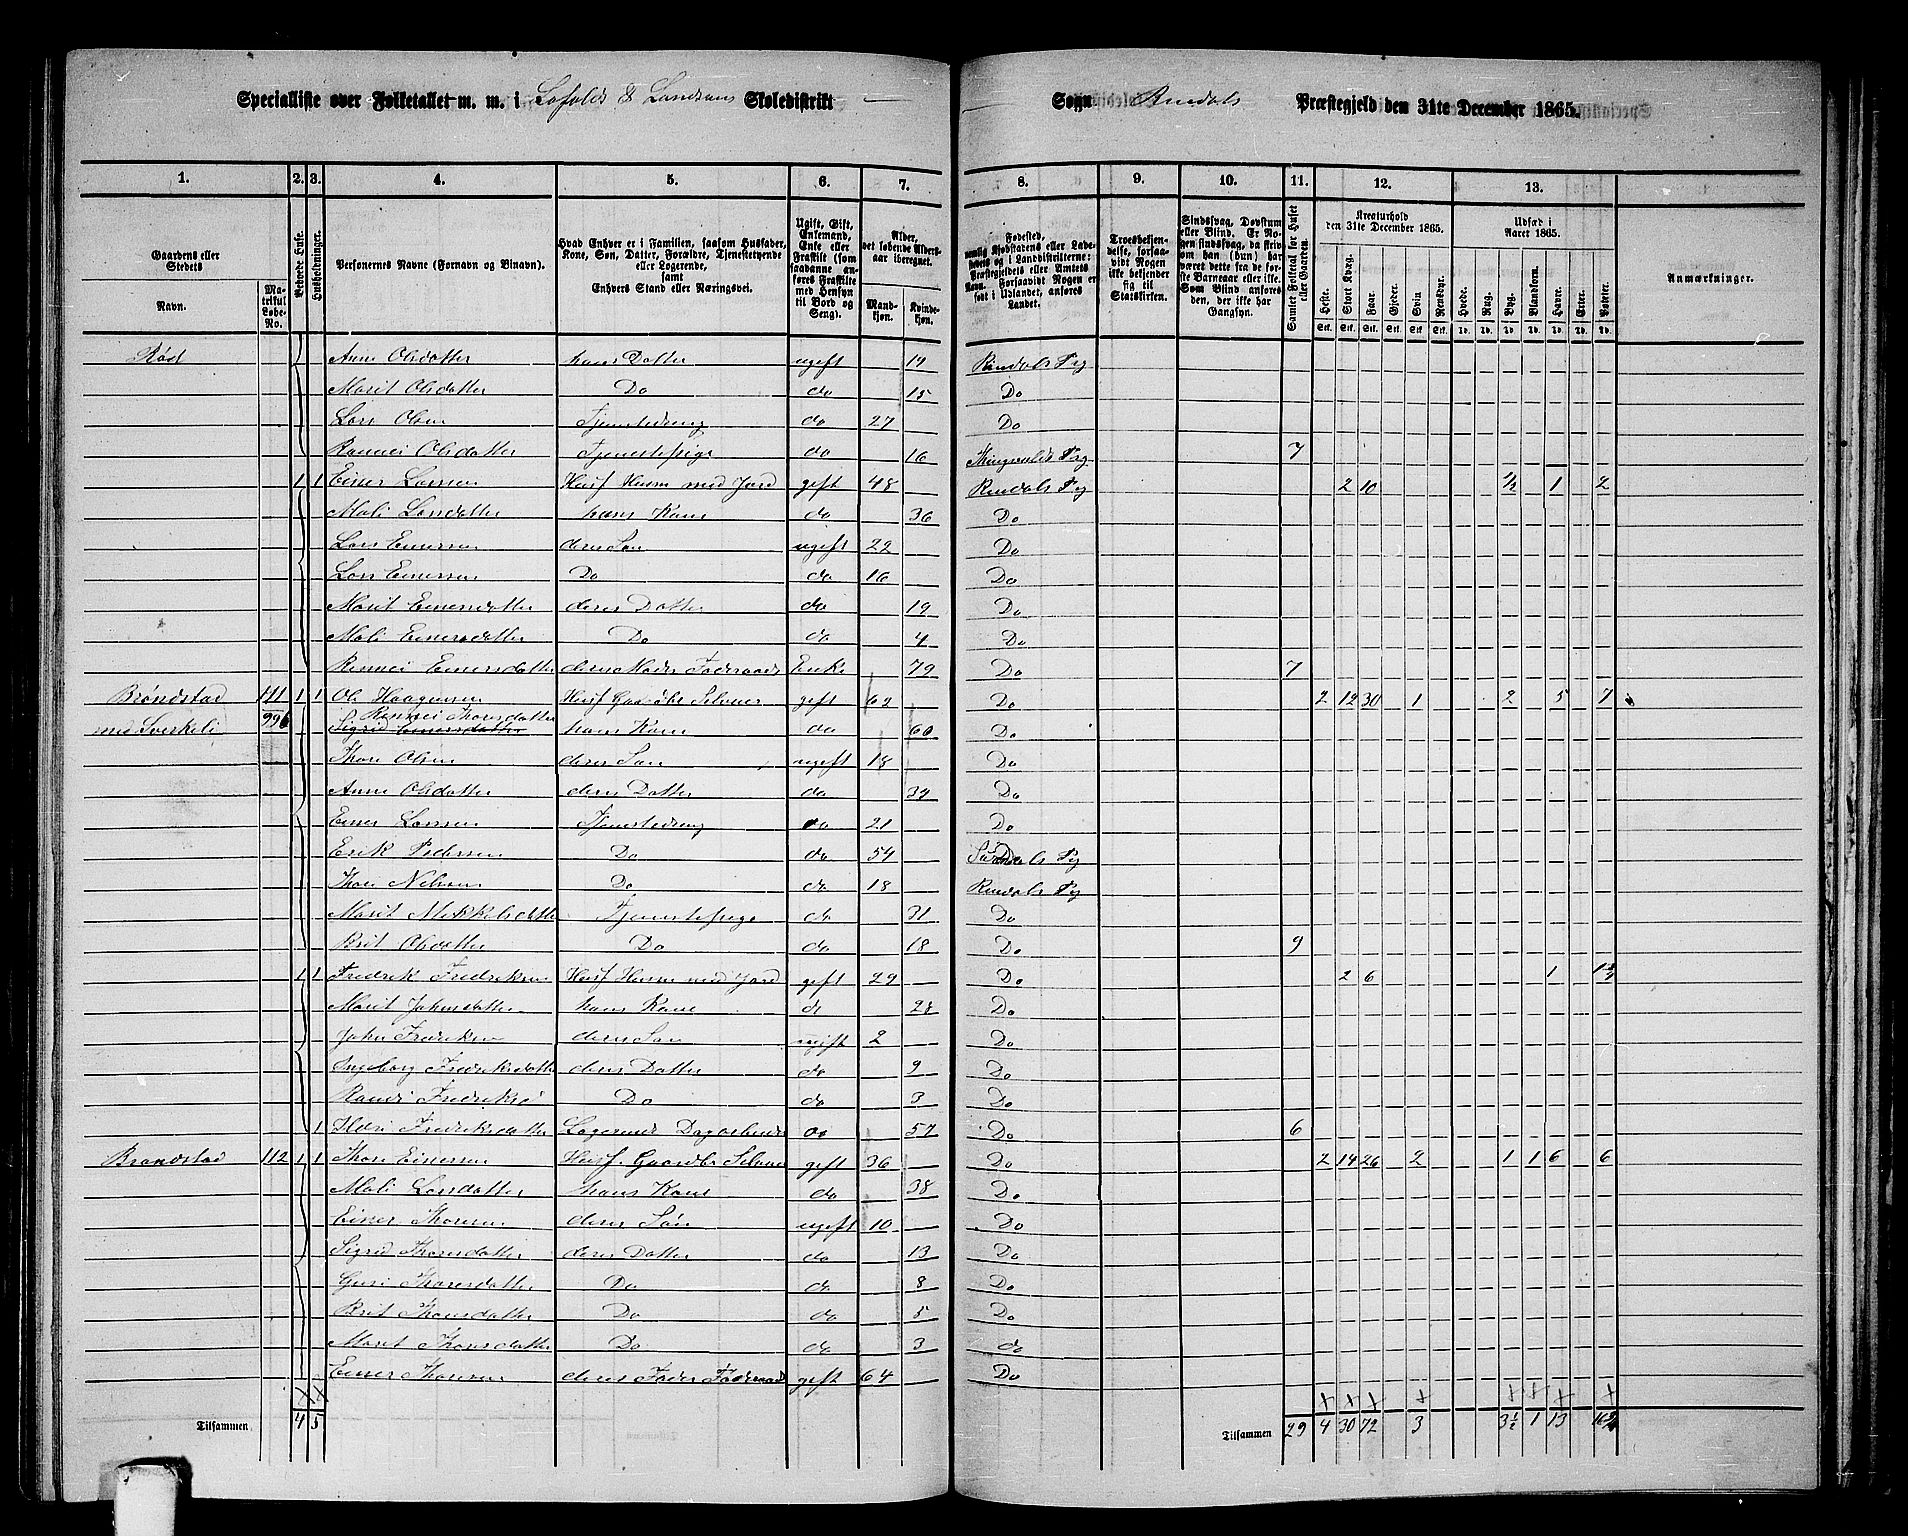 Specialliste over Folketallet m. m. i Lofalds & Landsems Skoledistrikt — Sogn Rindals Præstegjeld den 31te December 1865.
1. 2. 3. 4. 5. 6. 7. 8. 9. 10. 11. 12. 13.
Gaardens eller Stedets
Navn.
Matrikul Løbe-No.
Beboede Huse.
Husholdninger.
Personernes Navne (Fornavn og Binavn).
Hvad Enhver er i Familien, saasom Husfader, Kone, Søn, Datter, Forældre, Tjenestetyende eller Logerende, samt Enhvers Stand eller Næringsvei.
Ugift, Gift, Enkemand, Enke eller Fraskilt (som saadanne anføres Fraskilte med Hensyn til Bord og Seng).
Alder, det løbende Aldersaar iberegnet.
Mandkjøn. Kvindekjøn.
Fødested,
Forsaavidt Nogen er født i Udlandet, anføres Landet.
Troesbekjendelse, forsaavidt Nogen ikke bekjender sig til Statskirken.
Sindssvag, Døvstum eller Blind. Er Nogen sindssvag, da skriv om han (hun) har været dette fra de første Barneaar eller ikke. Som Blind anføres den, der ikke har Gangsyn.
Samlet Folketal for Huset eller Gaarden.
Kreaturhold den 31te December 1865.
Heste. Stort Kvæg. Faar. Gjeder. Svin Rensdyr.
Udsæd i Aaret 1865.
Hvede. Rug. Byg. Blandkorn. Havre. Erter. Poteter.
Anmærkninger.
Rød Anne Olsdatter hans Datter ugift 19 Rindals Pg
Marit Olsdatter Do do 15 Do
Lars Olsen Tjenestedreng do 27 Do
Rannei Olsdatter Tjenestepige do 16 Thingvolds Pg 7
1 1 Einer Larssen Husf Husm med Jord gift 48 Rindals Pg 2 10 ½ 1 2
Mali Larsdatter hans Kone do 36 Do
Lars Einersen deres Søn ugift 22 Do
Lars Einersen Do do 16 Do
Marit Einersdatter deres Datter do 19 Do
Mali Einersdatter Do do 4 Do
Rannei Einersdatter deres Moder Føderaads Enke 79 Do 7
Brøndstad 111 1 1 Ole Haagensen Husf Gaardbr Selveier gift 62 Do 2 12 30 1 2 5 7
med Sverkeli 99b Rannei Thoresdatter hans Kone do 60 Do
Thore Olsen deres Søn ugift 18 Do
Anne Olsdatter deres Datter do 34 Do
Einer Larssen Tjenestedreng do 21 Do
Erik Pedersen Do do 54 Sundals Pg
Thore Nilsen Do do 18 Rindals Pg
Marit Mikkelsdatter Tjenestepige do 31 Do
Brit Olsdatter Do do 18 Do 9
1 1 Fredrik Fredriksen Husf Husm med Jord gift 29 Do 2 6 1 1½
Marit Johnsdatter hans Kone do 28 Do
John Fredriksen deres Søn ugift 2 Do
Ingeborg Fredriksdatter deres Datter do 9 Do
Randi Fredriksd Do do 3 Do
1 Fredriksdatter Logerende Dagarbeider do 57 Do 6
Brøndstad 112 1 1 Thore Einersen Husf. Gaardbr Selveier gift 36 Do 2 14 26 2 1 1 6 6
Mali Larsdatter hans Kone do 38 Do
Einer Thoresen deres Søn ugift 10 Do
Sigrid Thoresdatter deres Datter do 13 Do
Guri Thoresdatter Do do 8 Do
Brit Thoresdatter Do do 5 Do
Marit Thoresdatter Do do 3 do
Einer Thoresen deres Fader Føderaad gift 64 Do
Tilsammen 4 5 Tilsammen 29 4 30 72 3 3½ 1 13 16½